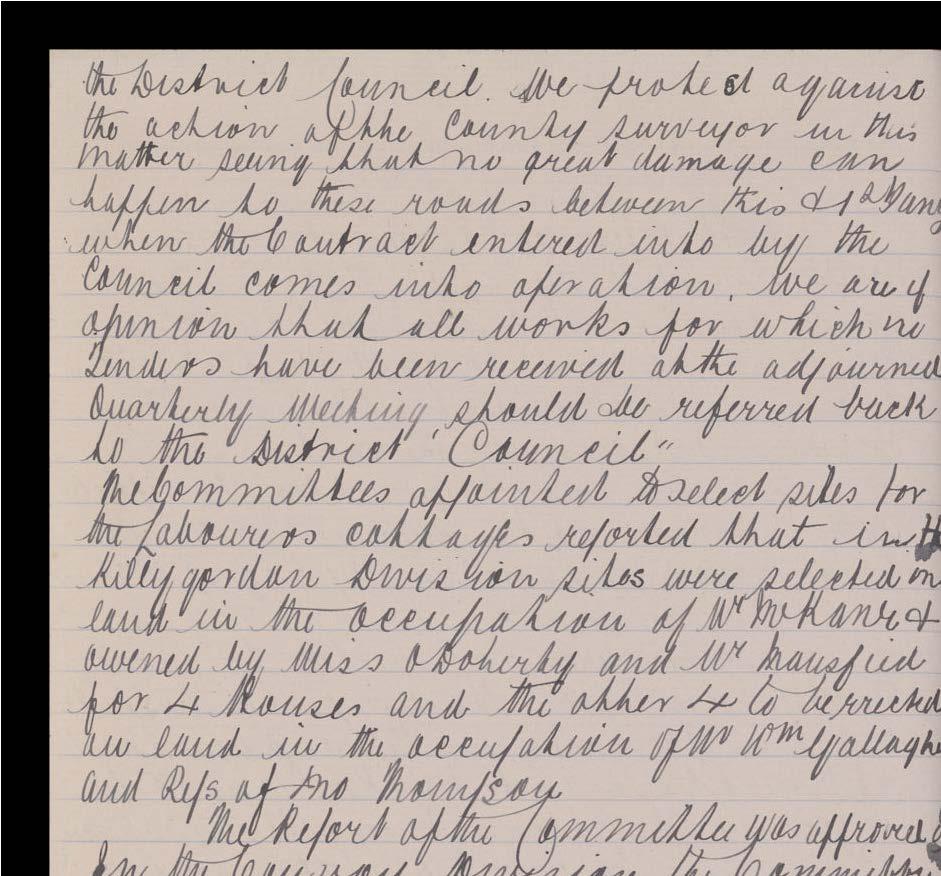 the District Council. We protest against
the action of the County surveyor in this
matter seeing that no great damage can
happen to these roads between this & 1st
when the Contract entered into by the
Council comes into operation. We are of
opinion that all works for which no
Tenders have been received at the adjourned
Quarterly Meeting should be referred back
to the District Council"
The Committees appointed to select sites for
the Labourers cottages reported that in
Killygordon Division sites were selected on
land in the occupation of Mr McKane &
owened by Miss ODoherty and Mr Mansfied
for 4 Houses and the other 4 to be rrected
on land in the occupation of Mr Wm
and Reps of Jno Thompson
The Report of the Committee was approved
In the Division the Committee